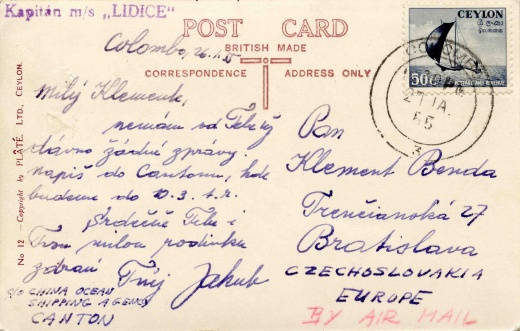 Kapitán m/s „LIDICE"
POST CARD
BRITISH MADE
CORRESPONDENCE
ADDRESS ONLY
CEYLON
50c
POSTAGE AND REVENUE
27 JA.
3
No 12 — Copyright by PLÂTÉ, LTD., CEYLON.
Colombo, 26.1.55
Milý Klemente,
nemám od Tebe již
dávno žádné zprávy.
napiš do Cantonu, kde
budeme do 10.3. t.r.
Srdečně Tebe i
Tvou milou rodinku
zdraví Tvůj Jakub
c/o CHINA OCEAN
SHIPPING AGENCY
CANTON
Pan
Klement Benda
Trenčianská 27
Bratislava
CZECHOSLOVAKIA
EUROPE
BY AIR MAIL